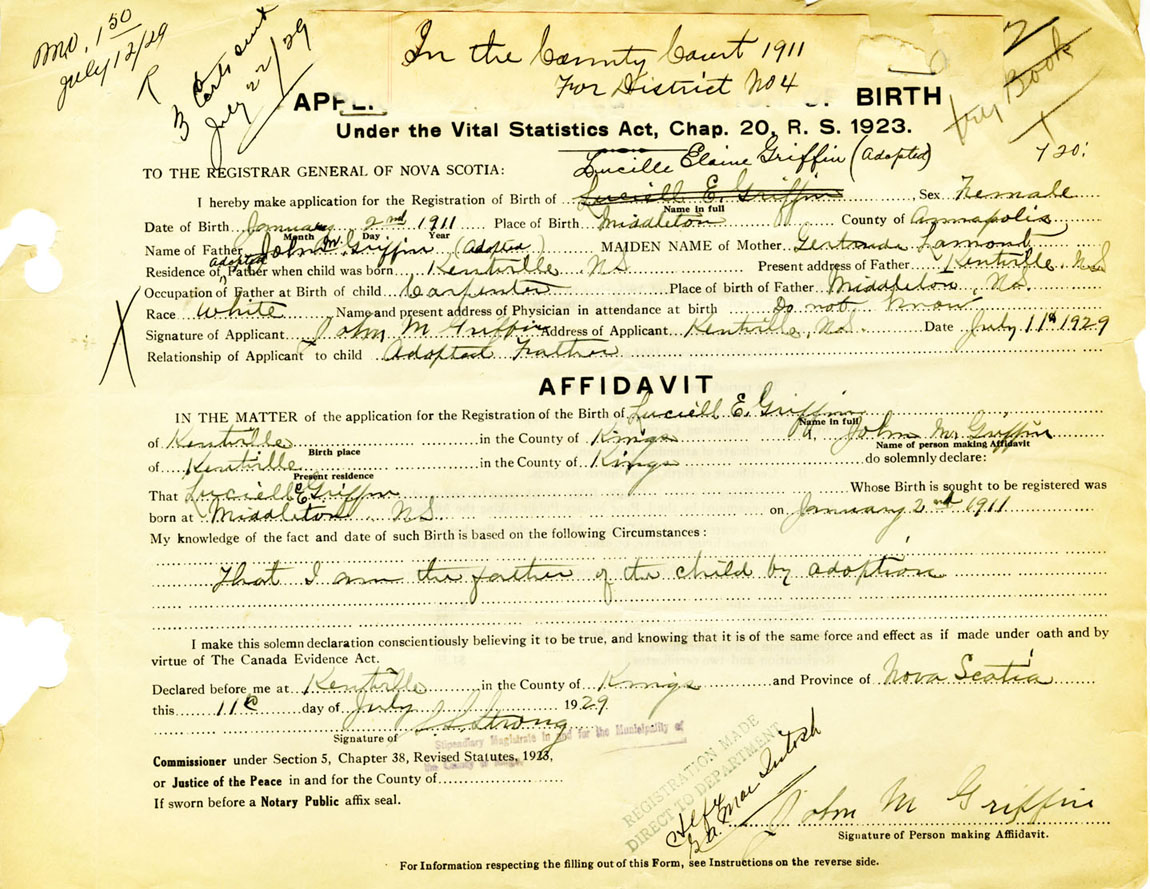 M.O. 1.50
July 12/29
R
3 Certs sent
July 22/29
In the County Court 1911
For District No 4
2
6
Book
APPL BIRTH
Under the Vital Statistics Act, Chap. 20, R. S. 1923.
Lucille Elaine Griffin (Adopted)
TO THE REGISTRAR GENERAL OF NOVA SCOTIA:
I hereby make application for the Registration of Birth of Luciell E. Griffin Sex Female
Name in full
Date of Birth January 2nd 1911 Place of Birth Middleton County of Annapolis
Month Day Year
Name of Father John M. Griffin (Adopted) MAIDEN NAME of Mother Gertrude Lamont
adopted
Residence of Father when child was born Kentville NS Present address of Father Kentville N.S
Occupation of Father at Birth of child Carpenter Place of birth of Father Middleton, NS
Race White Name and present address of Physician in attendance at birth Do not know
Signature of Applicant John M Griffin Address of Applicant Kentville, NS. Date July 11th 1929
Relationship of Applicant to child Adopted Father
AFFIDAVIT
IN THE MATTER of the application for the Registration of the Birth of Luciell E. Griffin
Name in full
of Kentville in the County of Kings I, John M. Griffin
Birth place Name of person making Affidavit
of Kentville in the County of Kings do solemnly declare:
Present residence
That Luciell E Griffin Whose Birth is sought to be registered was
born at Middleton NS on January 2nd 1911
My knowledge of the fact and date of such Birth is based on the following Circumstances:
That I am the father of the child by adoption
I make this solemn declaration conscientiously believing it to be true, and knowing that it is of the same force and effect as if made under oath and by
virtue of The Canada Evidence Act.
Declared before me at Kentville in the County of Kings and Province of Nova Scotia
this 11th day of July 1929
Strong
Signature of
Stipendiary Magistrate in and for the Municipality of
the County of Kings
Commissioner under Section 5, Chapter 38, Revised Statutes, 1923,
or Justice of the Peace in and for the County of
If sworn before a Notary Public affix seal.
REGISTRATION MADE
DIRECT TO DEPARTMENT
John M Griffin
Signature of Person making Affidavit.
For Information respecting the filling out of this Form, see Instructions on the reverse side.